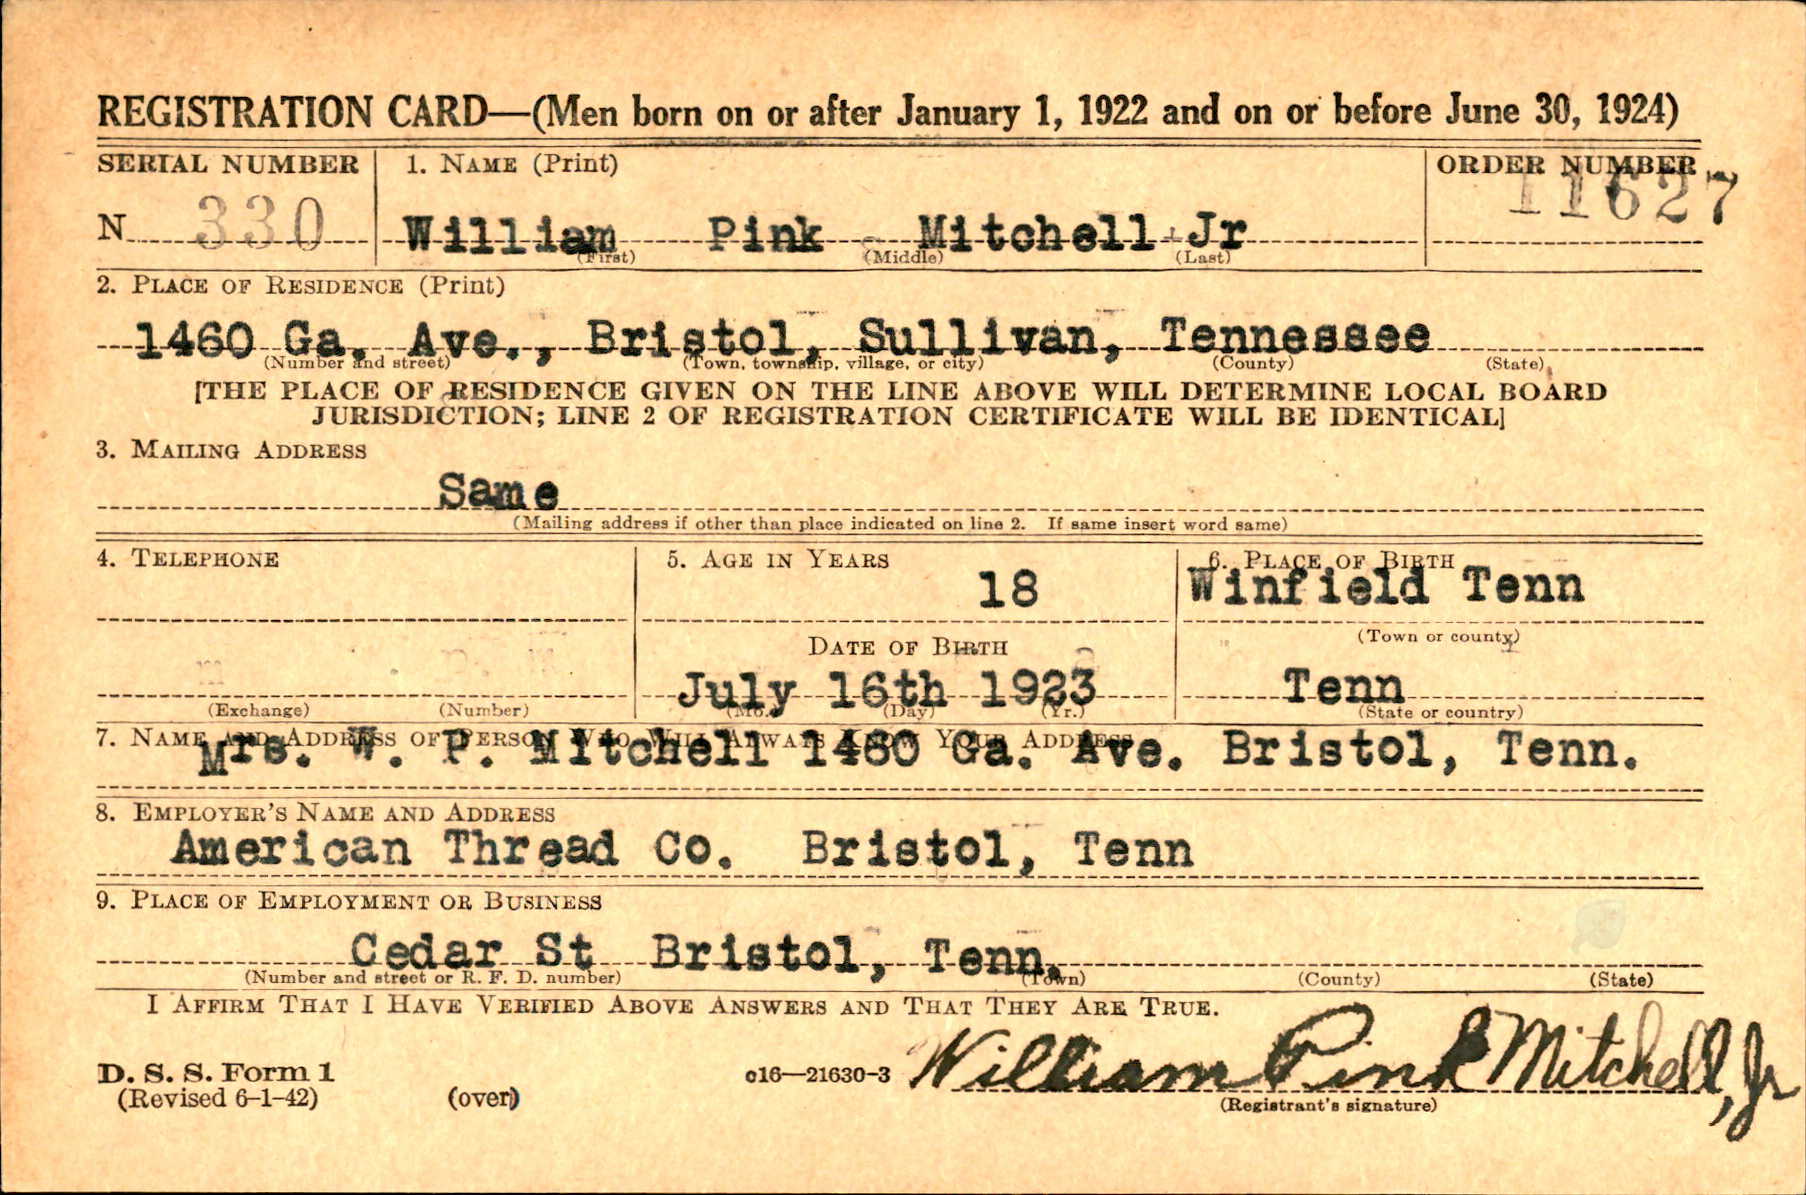 REGISTRATION CARD—(Men born on or after January 1, 1922 and on or before June 30, 1924)
SERIAL NUMBER 1. NAME (Print) ORDER NUMBER
N 330 William Pink Mitchell Jr 11627
(First) (Middle) (Last)
2. PLACE OF RESIDENCE (Print)
1460 Ga. Ave., Bristol, Sullivan, Tennessee
(Number and street) (Town, township, village, or city) (County) (State)
[THE PLACE OF RESIDENCE GIVEN ON THE LINE ABOVE WILL DETERMINE LOCAL BOARD
JURISDICTION; LINE 2 OF REGISTRATION CERTIFICATE WILL BE IDENTICAL]
3. MAILING ADDRESS
Same
(Mailing address if other than place indicated on line 2. If same insert word same)
4. TELEPHONE 5. AGE IN YEARS 6. PLACE OF BIRTH
18 Winfield Tenn
DATE OF BIRTH (Town or county)
July 16th 1923 Tenn
(Exchange) (Number) (Mo.) (Day) (Yr.) (State or country)
7. NAME AND ADDRESS OF PERSON WHO WILL ALWAYS KNOW YOUR ADDRESS
Mrs. W. P. Mitchell 1460 Ga. Ave. Bristol, Tenn.
8. EMPLOYER'S NAME AND ADDRESS
American Thread Co. Bristol, Tenn
9. PLACE OF EMPLOYMENT OR BUSINESS
Cedar St Bristol, Tenn.
(Number and street or R. F. D. number) (Town) (County) (State)
I AFFIRM THAT I HAVE VERIFIED ABOVE ANSWERS AND THAT THEY ARE TRUE.
D. S. S. Form 1 c16—21630-3 William Pink Mitchell, Jr
(Revised 6-1-42) (over) (Registrant's signature)